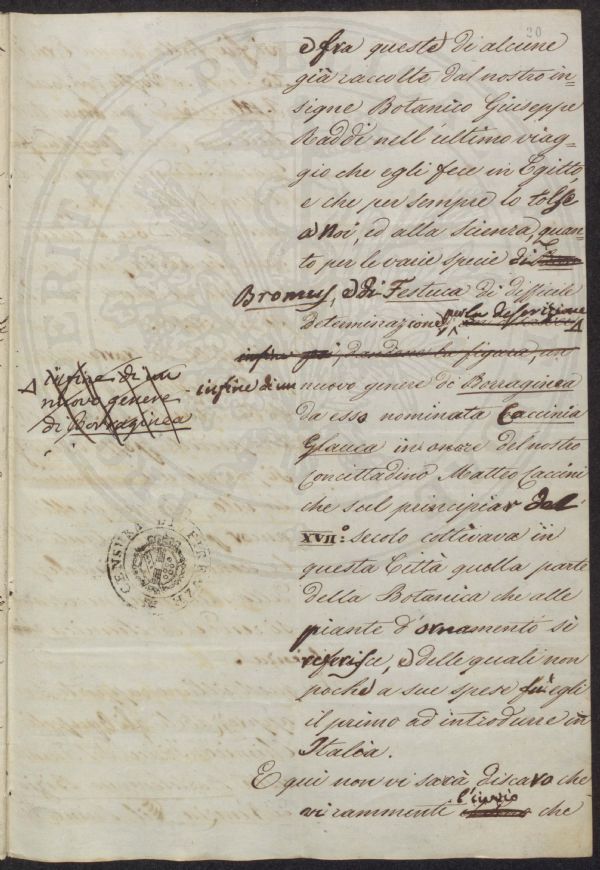 20
e fra queste di alcune
già raccolte dal nostro in-
signe Botanico Giuseppe
Raddi nell'ultimo viag-
gio che egli fece in Egitto,
e che per sempre lo tolse
a Noi, ed alla scienza, quan-
to per le varie specie di
Bromus, e di Festuca di difficile
determinazione, per la descrizione
infine già, dandone la figura, un
infine di un
nuovo genere
di Borraginea
infine di un nuovo genere di Borraginea
da esso nominata Caccinia
Glauca in onore del nostro
Concittadino Matteo Caccini
che sul principiar del
XVII.º secolo coltivava in
questa Città quella parte
della Botanica che alle
piante d'ornamento si
referisce, e delle quali non
poche a sue spese fu egli
il primo ad introdurre in
Italia.
E qui non vi sarà discaro che
vi rammenti che
CENSURA DI FIRENZE